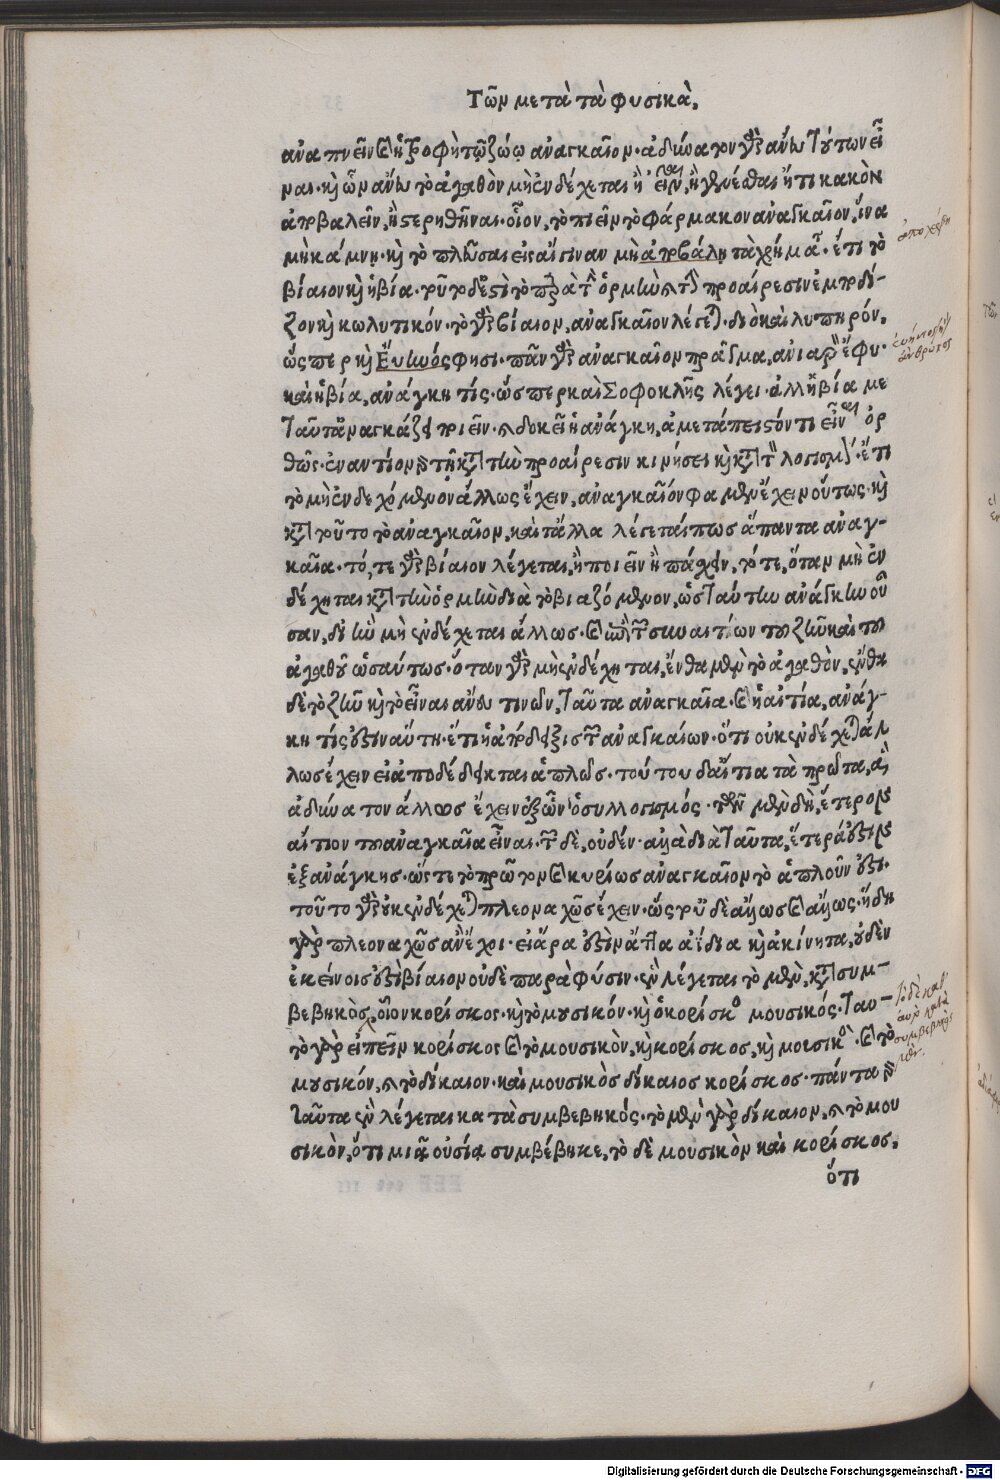 Τῶν μετὰ τὰ φυσικὰ.
ἀναπνεῖν καὶ ἡ τροφὴ τῷ ζώῳ ἀναγκαῖον. ἀδύνατον γὰρ ἄνευ τούτων εἶ
ναι. καὶ ὧν ἄνευ τὸ ἀγαθὸν μὴ ἐνδέχεται ἢ εἶναι, ἢ γενέσθαι ἤ τι κακὸν
ἀποβαλεῖν, ἢ στερηθῆναι. οἷον, τὸ πιεῖν τὸ φάρμακον ἀναγκαῖον, ἵνα
μὴ κάμνῃ. καὶ τὸ πλεῦσαι εἰς αἴγιναν μὴ ἀποβάλῃ τὰ χρήματα. ἔτι τὸ
βίαιον καὶ ἡ βία. τοῦτο δέ ἐστι τὸ παρὰ τὴν ὁρμὴν καὶ τὴν προαίρεσιν ἐμποδί-
ζον καὶ κωλυτικόν. τὸ γὰρ βίαιον, ἀναγκαῖον λέγεται. διὸ καὶ λυπηρόν.
ὥσπερ καὶ Εὔηνός φησι. πᾶν γὰρ ἀναγκαῖον πρᾶγμα, ἀνιαρὸν ἔφυ.
καὶ ἡ βία, ἀνάγκη τίς. ὥσπερ καὶ Σοφοκλῆς λέγει. ἀλλ' ἡ βία με
ταῦτ' ἀναγκάζει ποιεῖν. καὶ δοκεῖ ἡ ἀνάγκη, ἀμετάπειστόν τι εἶναι ὀρ
θῶς. ἐναντίον γὰρ τῇ κατὰ τὴν προαίρεσιν κινήσει καὶ κατὰ τὸν λογισμόν. ἔτι
τὸ μὴ ἐνδεχόμενον ἄλλως ἔχειν, ἀναγκαῖόν φαμεν ἔχειν οὕτως. καὶ
κατὰ τοῦτο τὸ ἀναγκαῖον, καὶ τἄλλα λέγεταί πως ἅπαντα ἀναγ-
καῖα. τό, τε γὰρ βίαιον λέγεται, ἢ ποιεῖν ἢ πάσχειν, τότε, ὅταν μὴ ἐν
δέχηται κατὰ τὴν ὁρμὴν διὰ τὸ βιαζόμενον, ὡς ταύτην ἀνάγκην οὖ
σαν, δι' ἣν μὴ ἐνδέχεται ἄλλως. καὶ ἐπὶ τῶν συναιτίων τοῦ ζῆν καὶ τοῦ
ἀγαθοῦ ὡσαύτως. ὅταν γὰρ μὴ ἐνδέχηται, ἔνθα μὲν τὸ ἀγαθὸν, ἔνθα
δὲ τὸ ζῆν καὶ τὸ εἶναι ἄνευ τινῶν, ταῦτα ἀναγκαῖα. καὶ ἡ αἰτία, ἀνάγ-
κη τίς ἐστιν αὕτη. ἔτι ἡ ἀπόδειξις τῶν ἀναγκαίων. ὅτι οὐκ ἐνδέχεται ἄλ
λως ἔχειν εἰ ἀποδέδεικται ἁπλῶς. τούτου δ' αἴτια τὰ πρῶτα, εἰ
ἀδύνατον ἄλλως ἔχειν ἐξ ὧν ὁ συλλογισμός. τῶν μὲν δὴ, ἕτερον
αἴτιον τοῦ ἀναγκαῖα εἶναι. τῶν δὲ, οὐδέν. ἀλλὰ διὰ ταῦτα, ἕτερά ἐστιν
ἐξ ἀνάγκης. ὥστε τὸ πρῶτον καὶ κυρίως ἀναγκαῖον τὸ ἁπλοῦν ἐστι.
τοῦτο γὰρ οὐκ ἐνδέχεται πλεοναχῶς ἔχειν. ὥστ' οὐδὲ ἄλλως καὶ ἄλλως. ἤδη
γὰρ πλεοναχῶς ἂν ἔχοι. εἰ ἄρα ἐστὶν ἄττα ἀΐδια καὶ ἀκίνητα, οὐδὲν
ἐκείνοις ἐστὶ βίαιον οὐδὲ παρὰ φύσιν. ἓν λέγεται τὸ μὲν, κατὰ συμ-
βεβηκὸς, οἷον κορίσκος. καὶ τὸ μουσικόν. καὶ ὁ κορίσκος μουσικός. ταυ-
τὸ γὰρ εἰπεῖν κορίσκος καὶ τὸ μουσικὸν, καὶ κορίσκος, καὶ μουσικὸς. καὶ τὸ
μουσικόν, καὶ τὸ δίκαιον. καὶ μουσικὸς δίκαιος κορίσκος. πάντα γὰρ
ταῦτα ἓν λέγεται κατὰ συμβεβηκός. τὸ μὲν γὰρ δίκαιον, καὶ τὸ μου
σικὸν, ὅτι μιᾷ οὐσίᾳ συμβέβηκε, τὸ δὲ μουσικὸν καὶ κορίσκος,
ὅτι
Digitalisierung gefördert durch die Deutsche Forschungsgemeinschaft - DFG